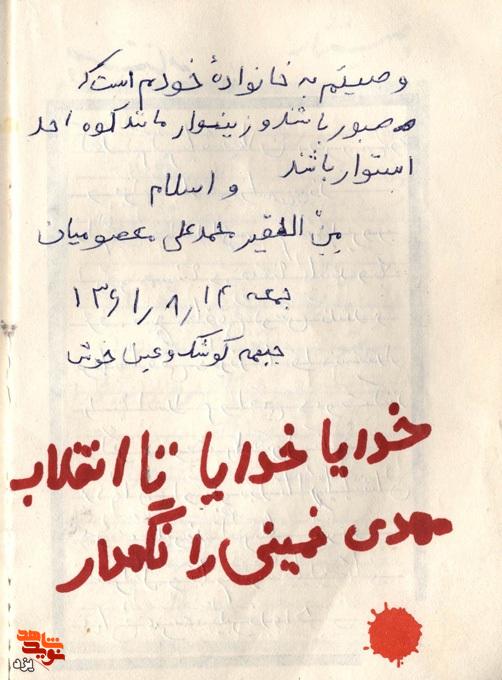 وصیتم به خانوادهٔ خودم است که
صبور باشند و زینبوار مانند کوه احد
استوار باشند
و اسلام
مِنَ الحقیر محمدعلی معصومیان
جمعه ۱۳۶۱/۸/۱۴
جبهه کوشک و عین خوش
خدایا خدایا تا انقلاب
مهدی خمینی را نگهدار
نوید شاهد
یزد